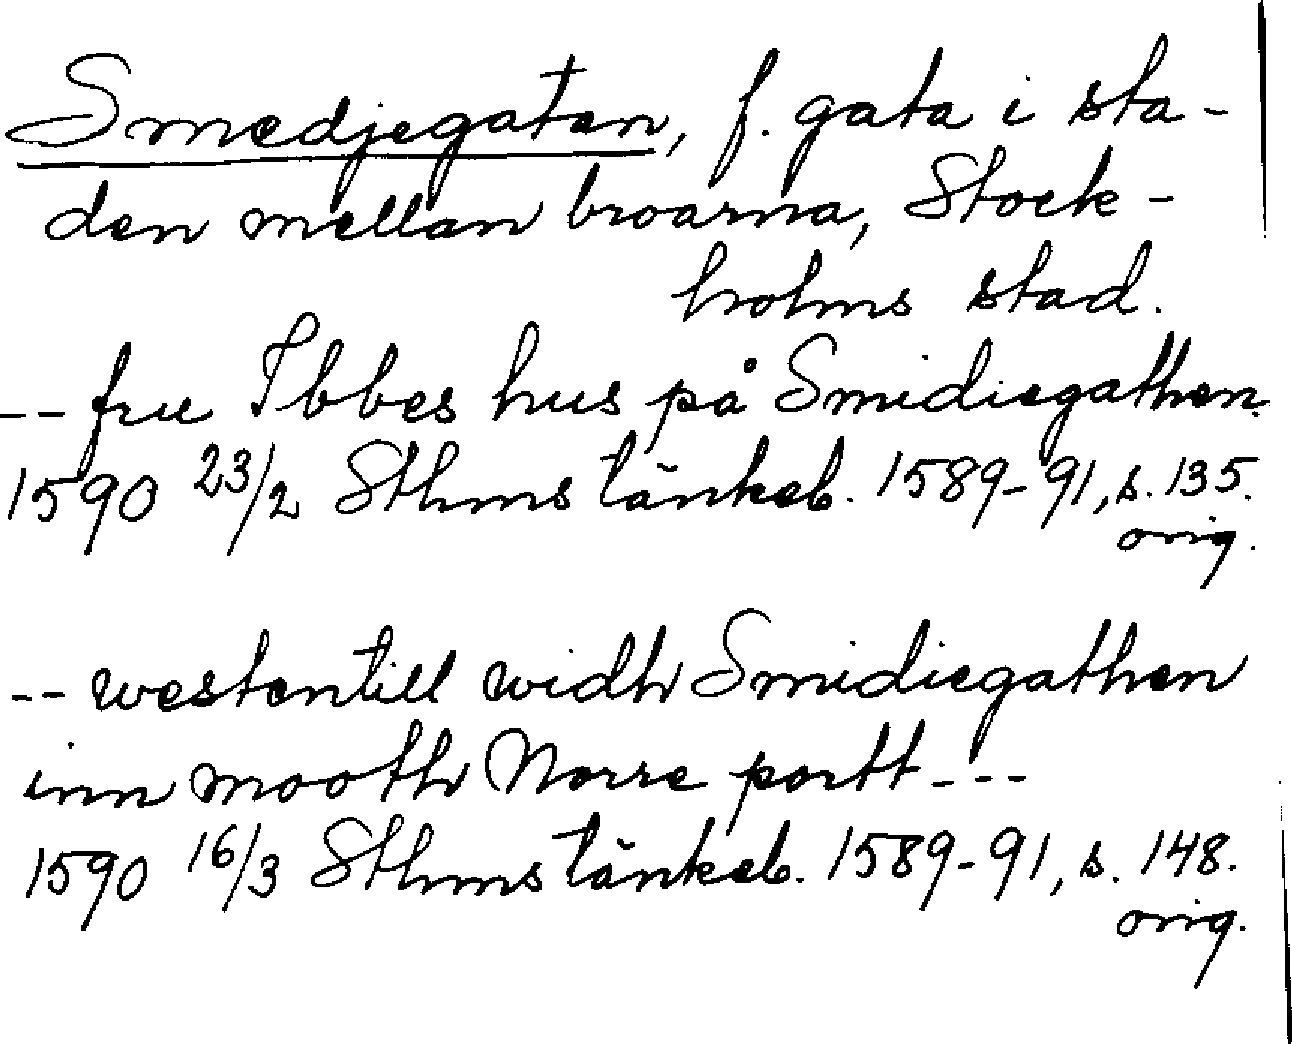 Smedjegatan, f. gata i sta-
den mellan broarna, Stock-
holms stad.
-- frue Ibbes hus på Smidiegathen.
1590 23/2 Sthms tänkeb. 1589-91, s. 135.
orig.
-- westentill widh Smidiegathen
inn mooth Norre portt ---
1590 16/3 Sthms tänkeb. 1589-91, s. 148.
orig.